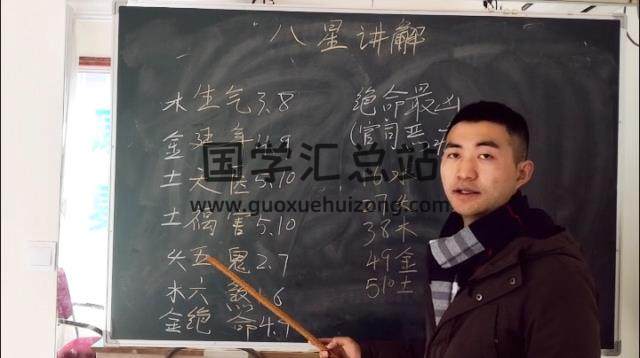 八星讲解
木生气3.8
金延年4.9
土天医5.10
土祸害5.10
火五鬼2.7
水六煞 6
金绝命4.9
绝命最凶
(官司恶
水
38木
49金
510土
国学汇总站
www.guoxuehuizong.com